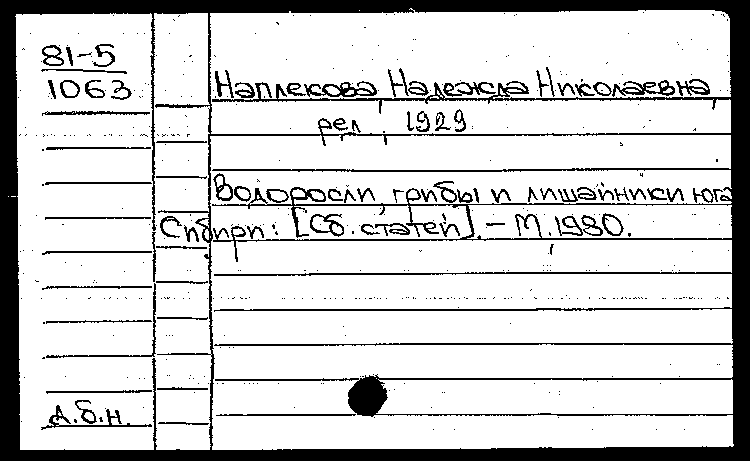 81-5
1063
Наплекова Надежда Николаевна,
ред., 1929
Водоросли, грибы и лишайники юга
Сибири: [Сб. статей]. – М. 1980.
д.б.н.